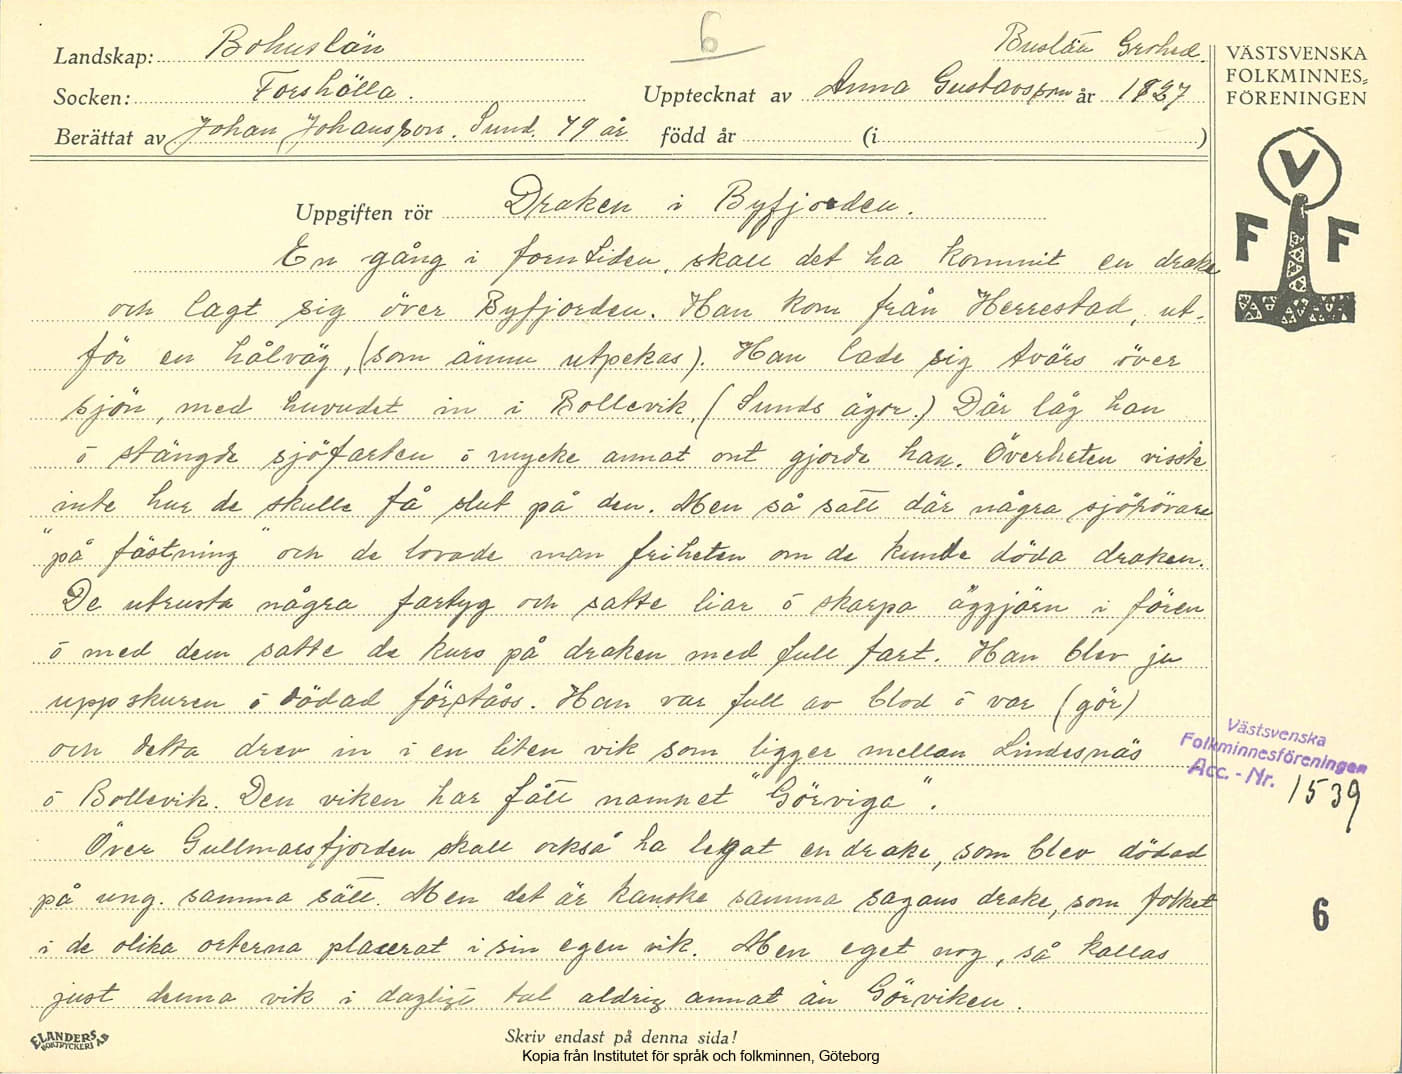 6
Landskap: Bohuslän
Socken: Forshälla.
Berättat av Johan Johansson. Sund. 79 år
Grohed.
Upptecknat av Anna Gustavsson år 1927
född år (i )
VÄSTSVENSKA
FOLKMINNES=
FÖRENINGEN
V
F F
Uppgiften rör Draken i Byfjorden.
En gång i forntiden, skall det ha kommit en drake
och lagt sig över Byfjorden. Han kom från Herrestad, ut-
för en hålväg, (som ännu utpekas). Han lade sig tvärs över
sjön, med huvudet in i Bollevik, (Sunds ägor.) Där låg han
ō stängde sjöfarten ō mycke annat ont gjorde han. Överheten visste
inte hur de skulle få slut på den. Men så satt där några sjörövare
"på fästning" och de lovade man friheten om de kunde döda draken.
De utrusta några fartyg och satte liar ō skarpa äggjärn i fören
ō med dem satte de kurs på draken med full fart. Han blev ju
uppskuren ō dödad förståss. Han var full av blod ō var (gör)
och detta drev in i en liten vik som ligger mellan Lindesnäs
ō Bollevik. Den viken har fått namnet "Görviga".
Över Gullmarsfjorden skall också ha legat en drake, som blev dödad
på ung. samma sätt. Men det är kanske samma sagans drake, som folket
i de olika orterna placerat i sin egen vik. Men eget nog, så kallas
just denna vik i dagligt tal aldrig annat än Görviken.
Västsvenska
Folkminnesföreningen
Acc. - Nr. 1539
6
ELANDERS
BOKTRYCKERI AB
Skriv endast på denna sida!
Kopia från Institutet för språk och folkminnen, Göteborg